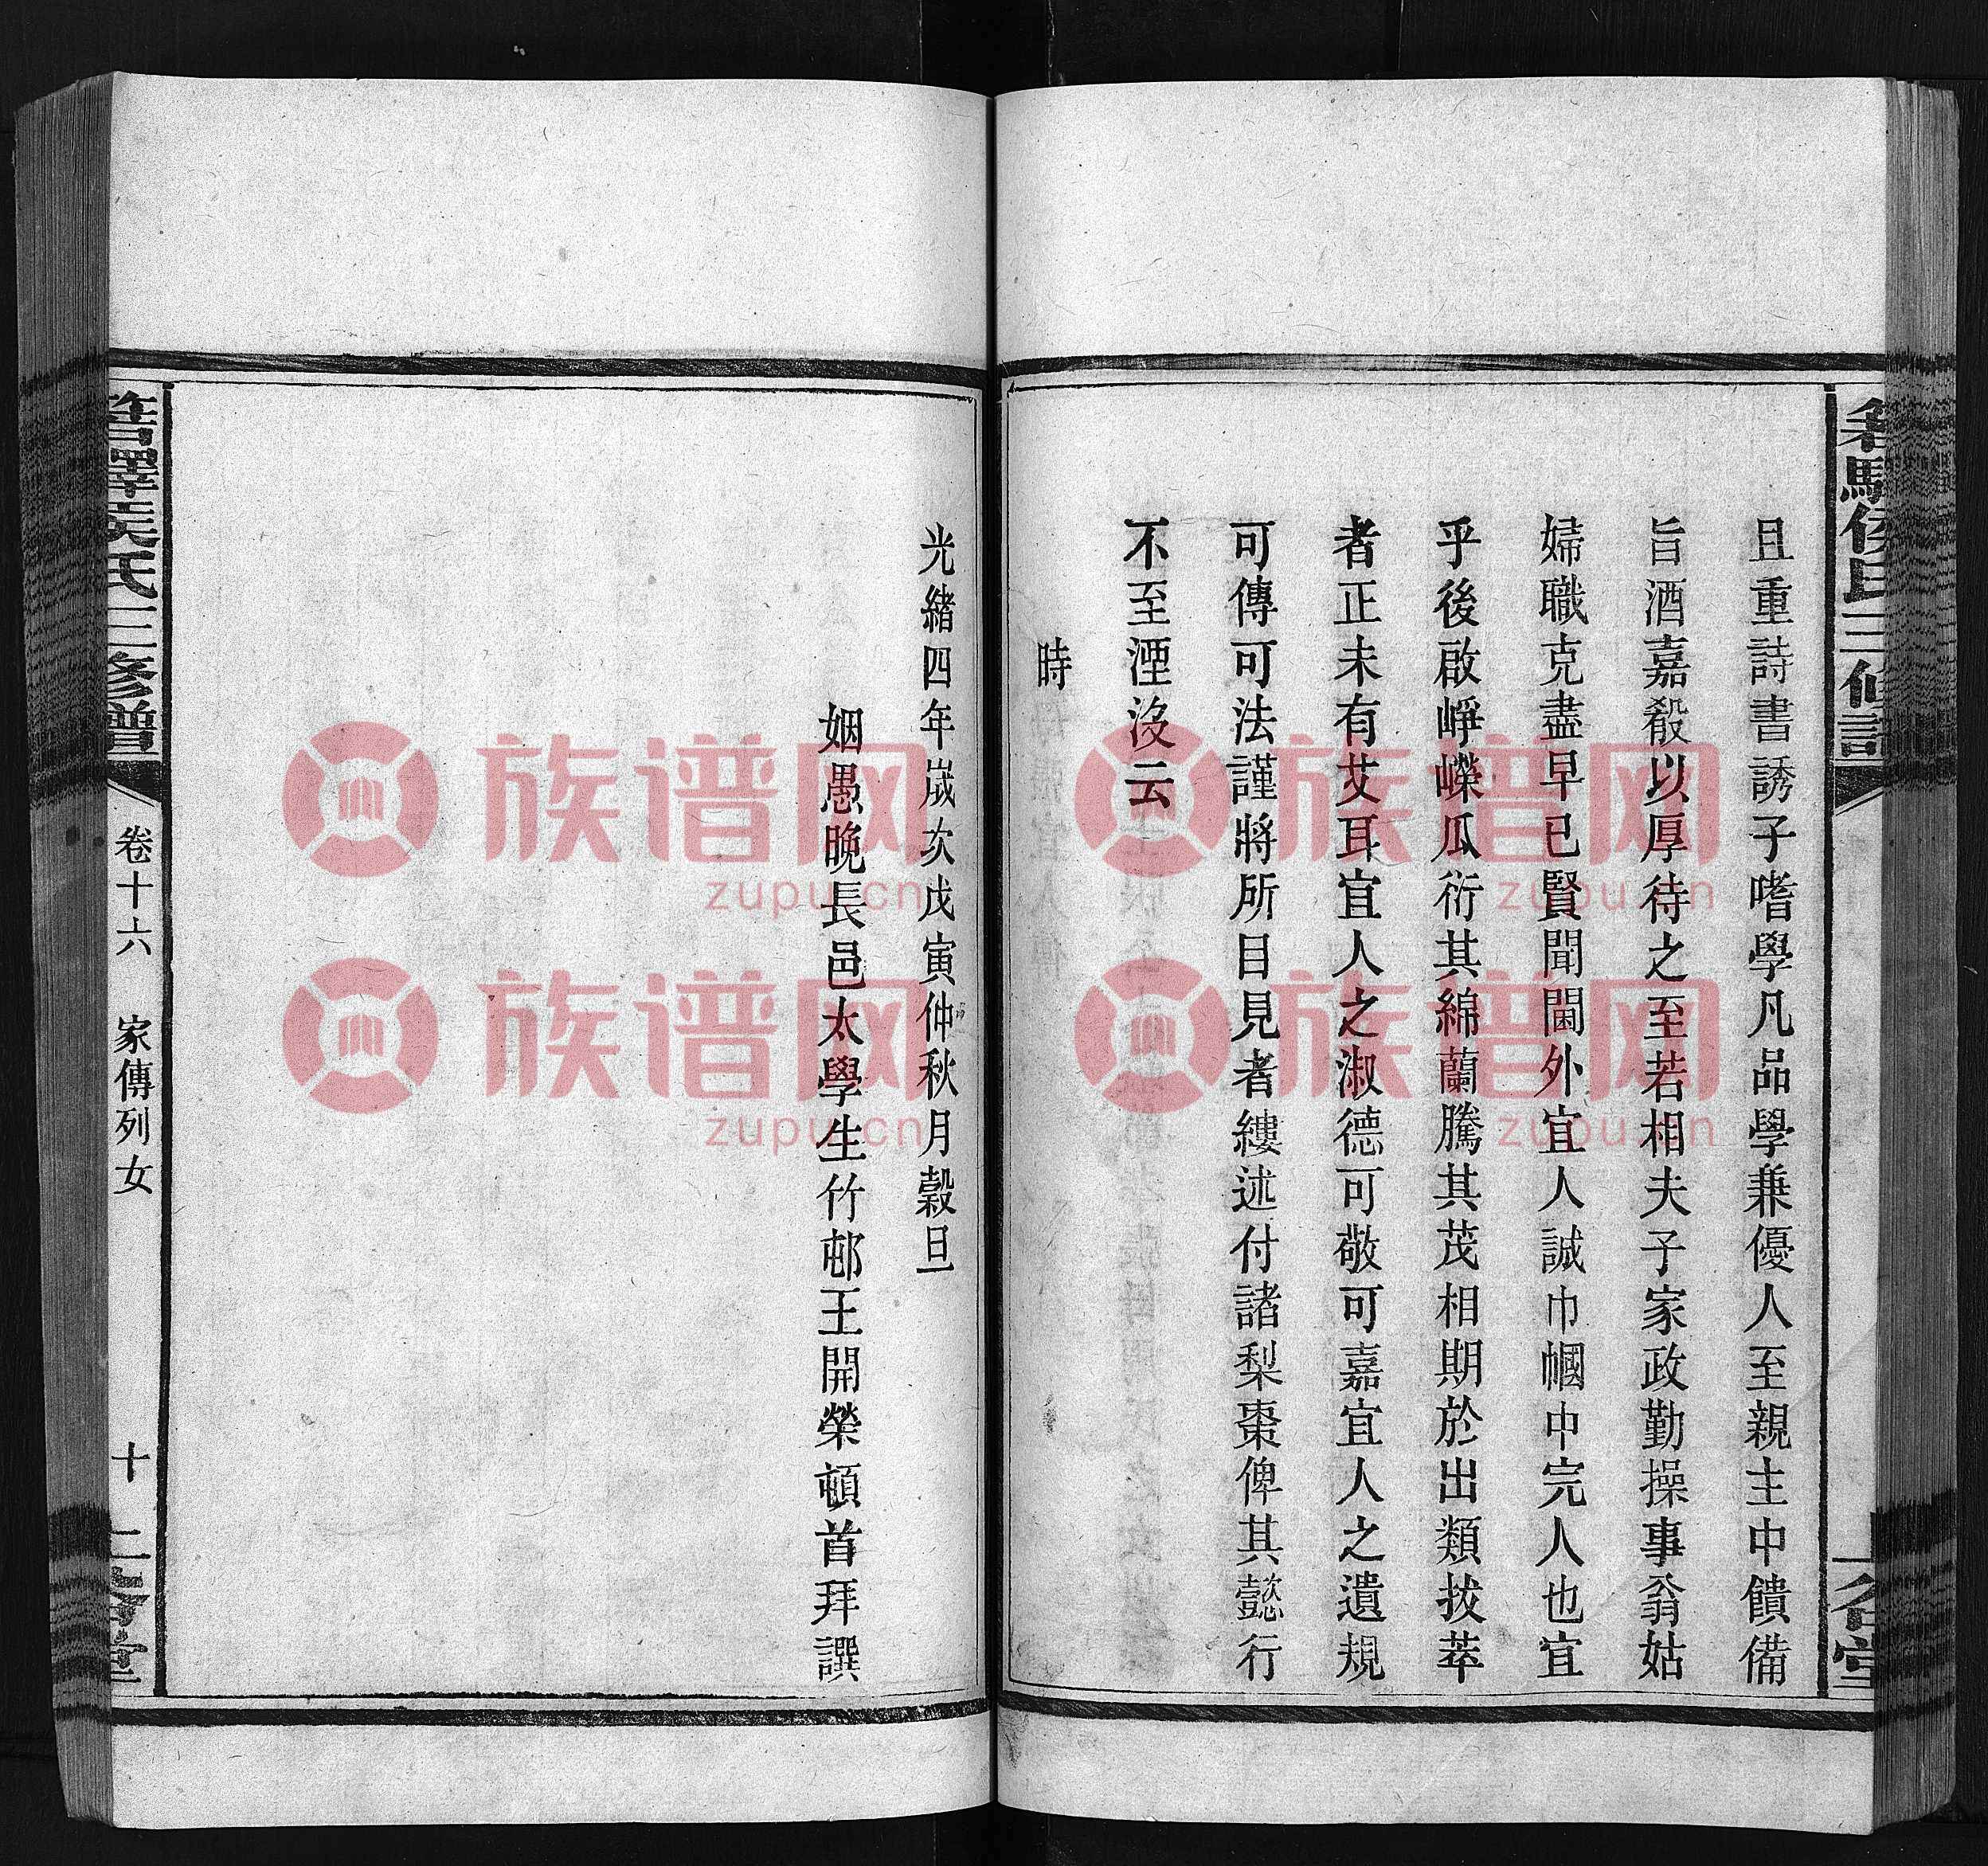 且重詩書誘子嗜學凡品學兼優人至親主中饋備
旨酒嘉殽以厚待之至若相夫子家政勤操事翁姑
婦職克盡早已賢聞閫外宜人誠巾幗中完人也宜
乎後啟崢嶸瓜衍其綿蘭騰其茂相期於出類拔萃
者正未有艾耳宜人之淑德可敬可嘉宜人之遺規
可傳可法謹將所目見者縷述付諸梨棗俾其懿行
不至湮沒云
時
光緒四年歲次戊寅仲秋月穀旦
姻愚晚長邑太學生竹邨王開榮頓首拜譔
侯氏三修譜
卷十六
家傳列女
十
族谱网
zupu.cn
族谱网
zupu.cn
族谱网
zupu.cn
族谱网
zupu.cn